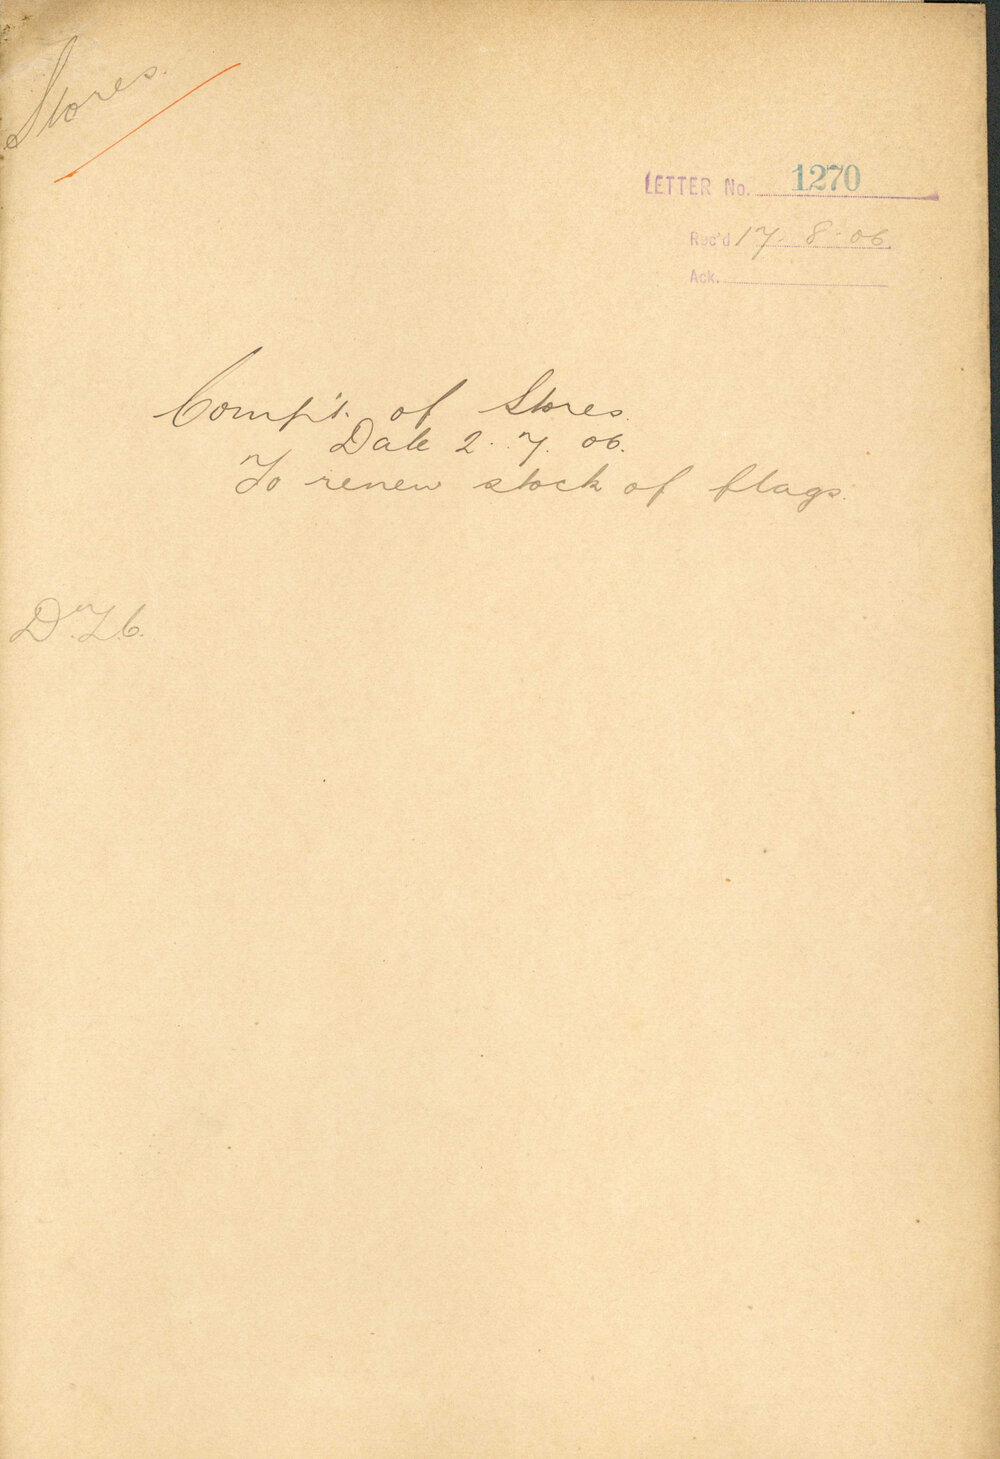 Stores.
LETTER No. 1270
Rec'd 17. 8. 06.
Ack.
Comp't. of Stores.
Date 2. 7. 06.
To renew stock of flags.